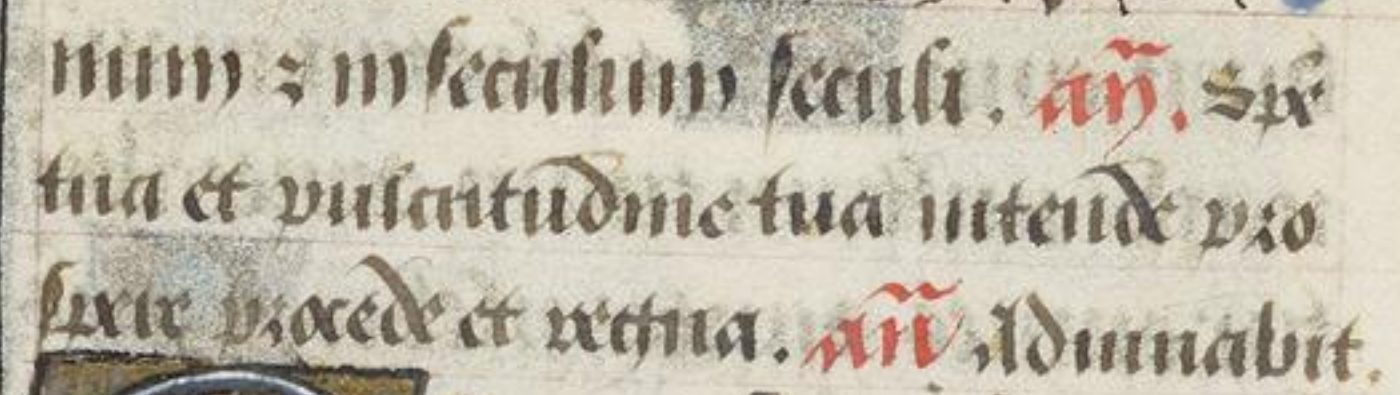 num ⁊ in seculum seculi. añ. Spe
tua et pulcritudine tua intende pro
spere procede et regna. añ Adiuuabit.